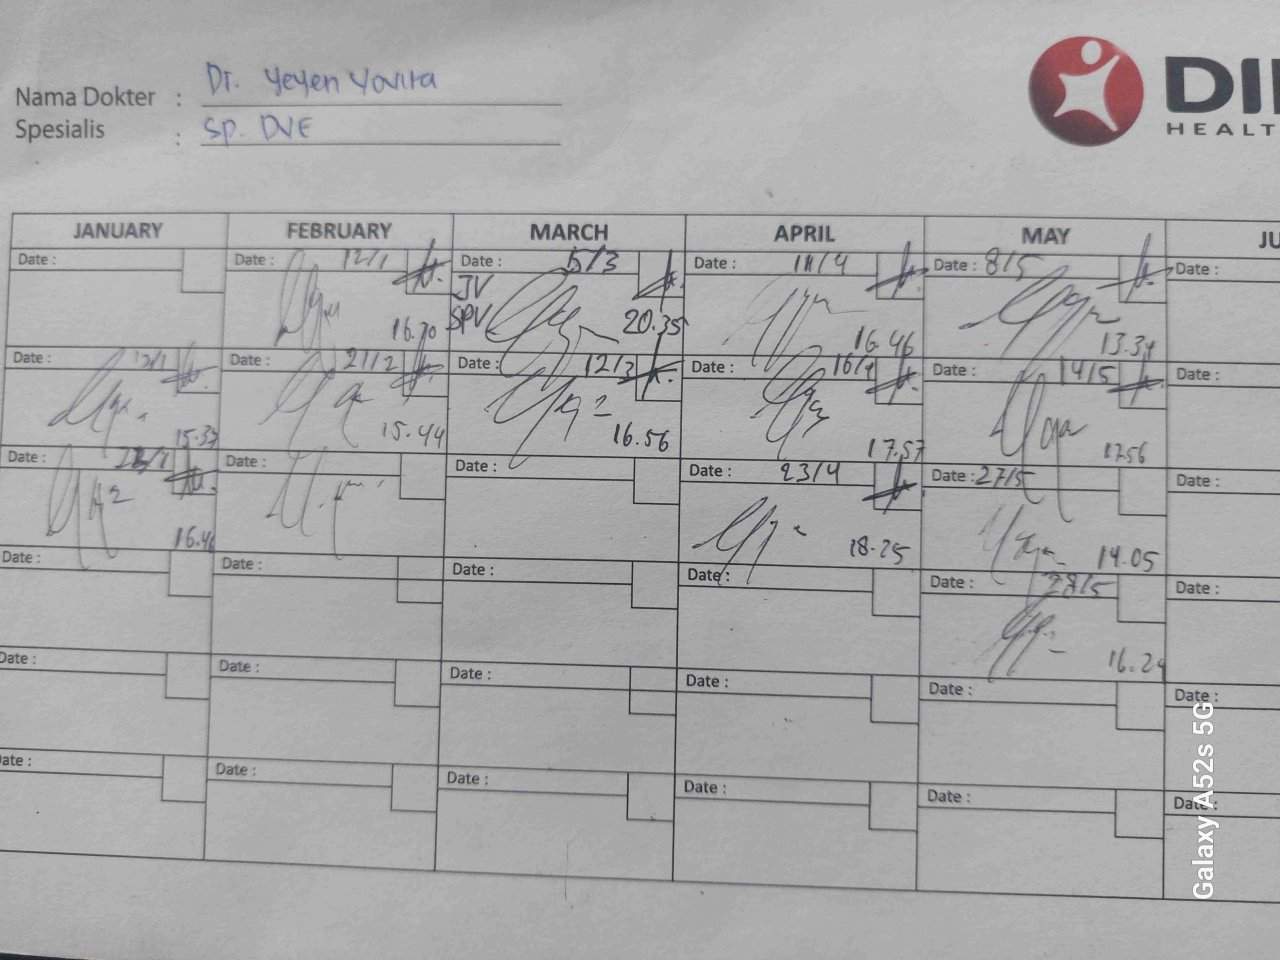 Nama Dokter : Dr. Yeyen Yovita
Spesialis : Sp. DVE
DI
HEALT
JANUARY FEBRUARY MARCH APRIL MAY JU
Date : Date : 12/1 Date : 5/3 Date : 11/4 Date : 8/5 Date :
JV
SPV
20.35 16.46 13.34
Date : 12/1 Date : 21/2 Date : 12/3 Date : 16/4 Date : 14/5 Date :
15.44 16.56 17.57 17.56
Date : Date : Date : Date : 23/4 Date : 27/5 Date :
16.46 18.25 14.05
Date : Date : Date : Date : Date : 28/5 Date :
16.24
Date : Date : Date : Date : Date : Date :
Date : Date : Date : Date : Date : Date :
Galaxy A52s 5G